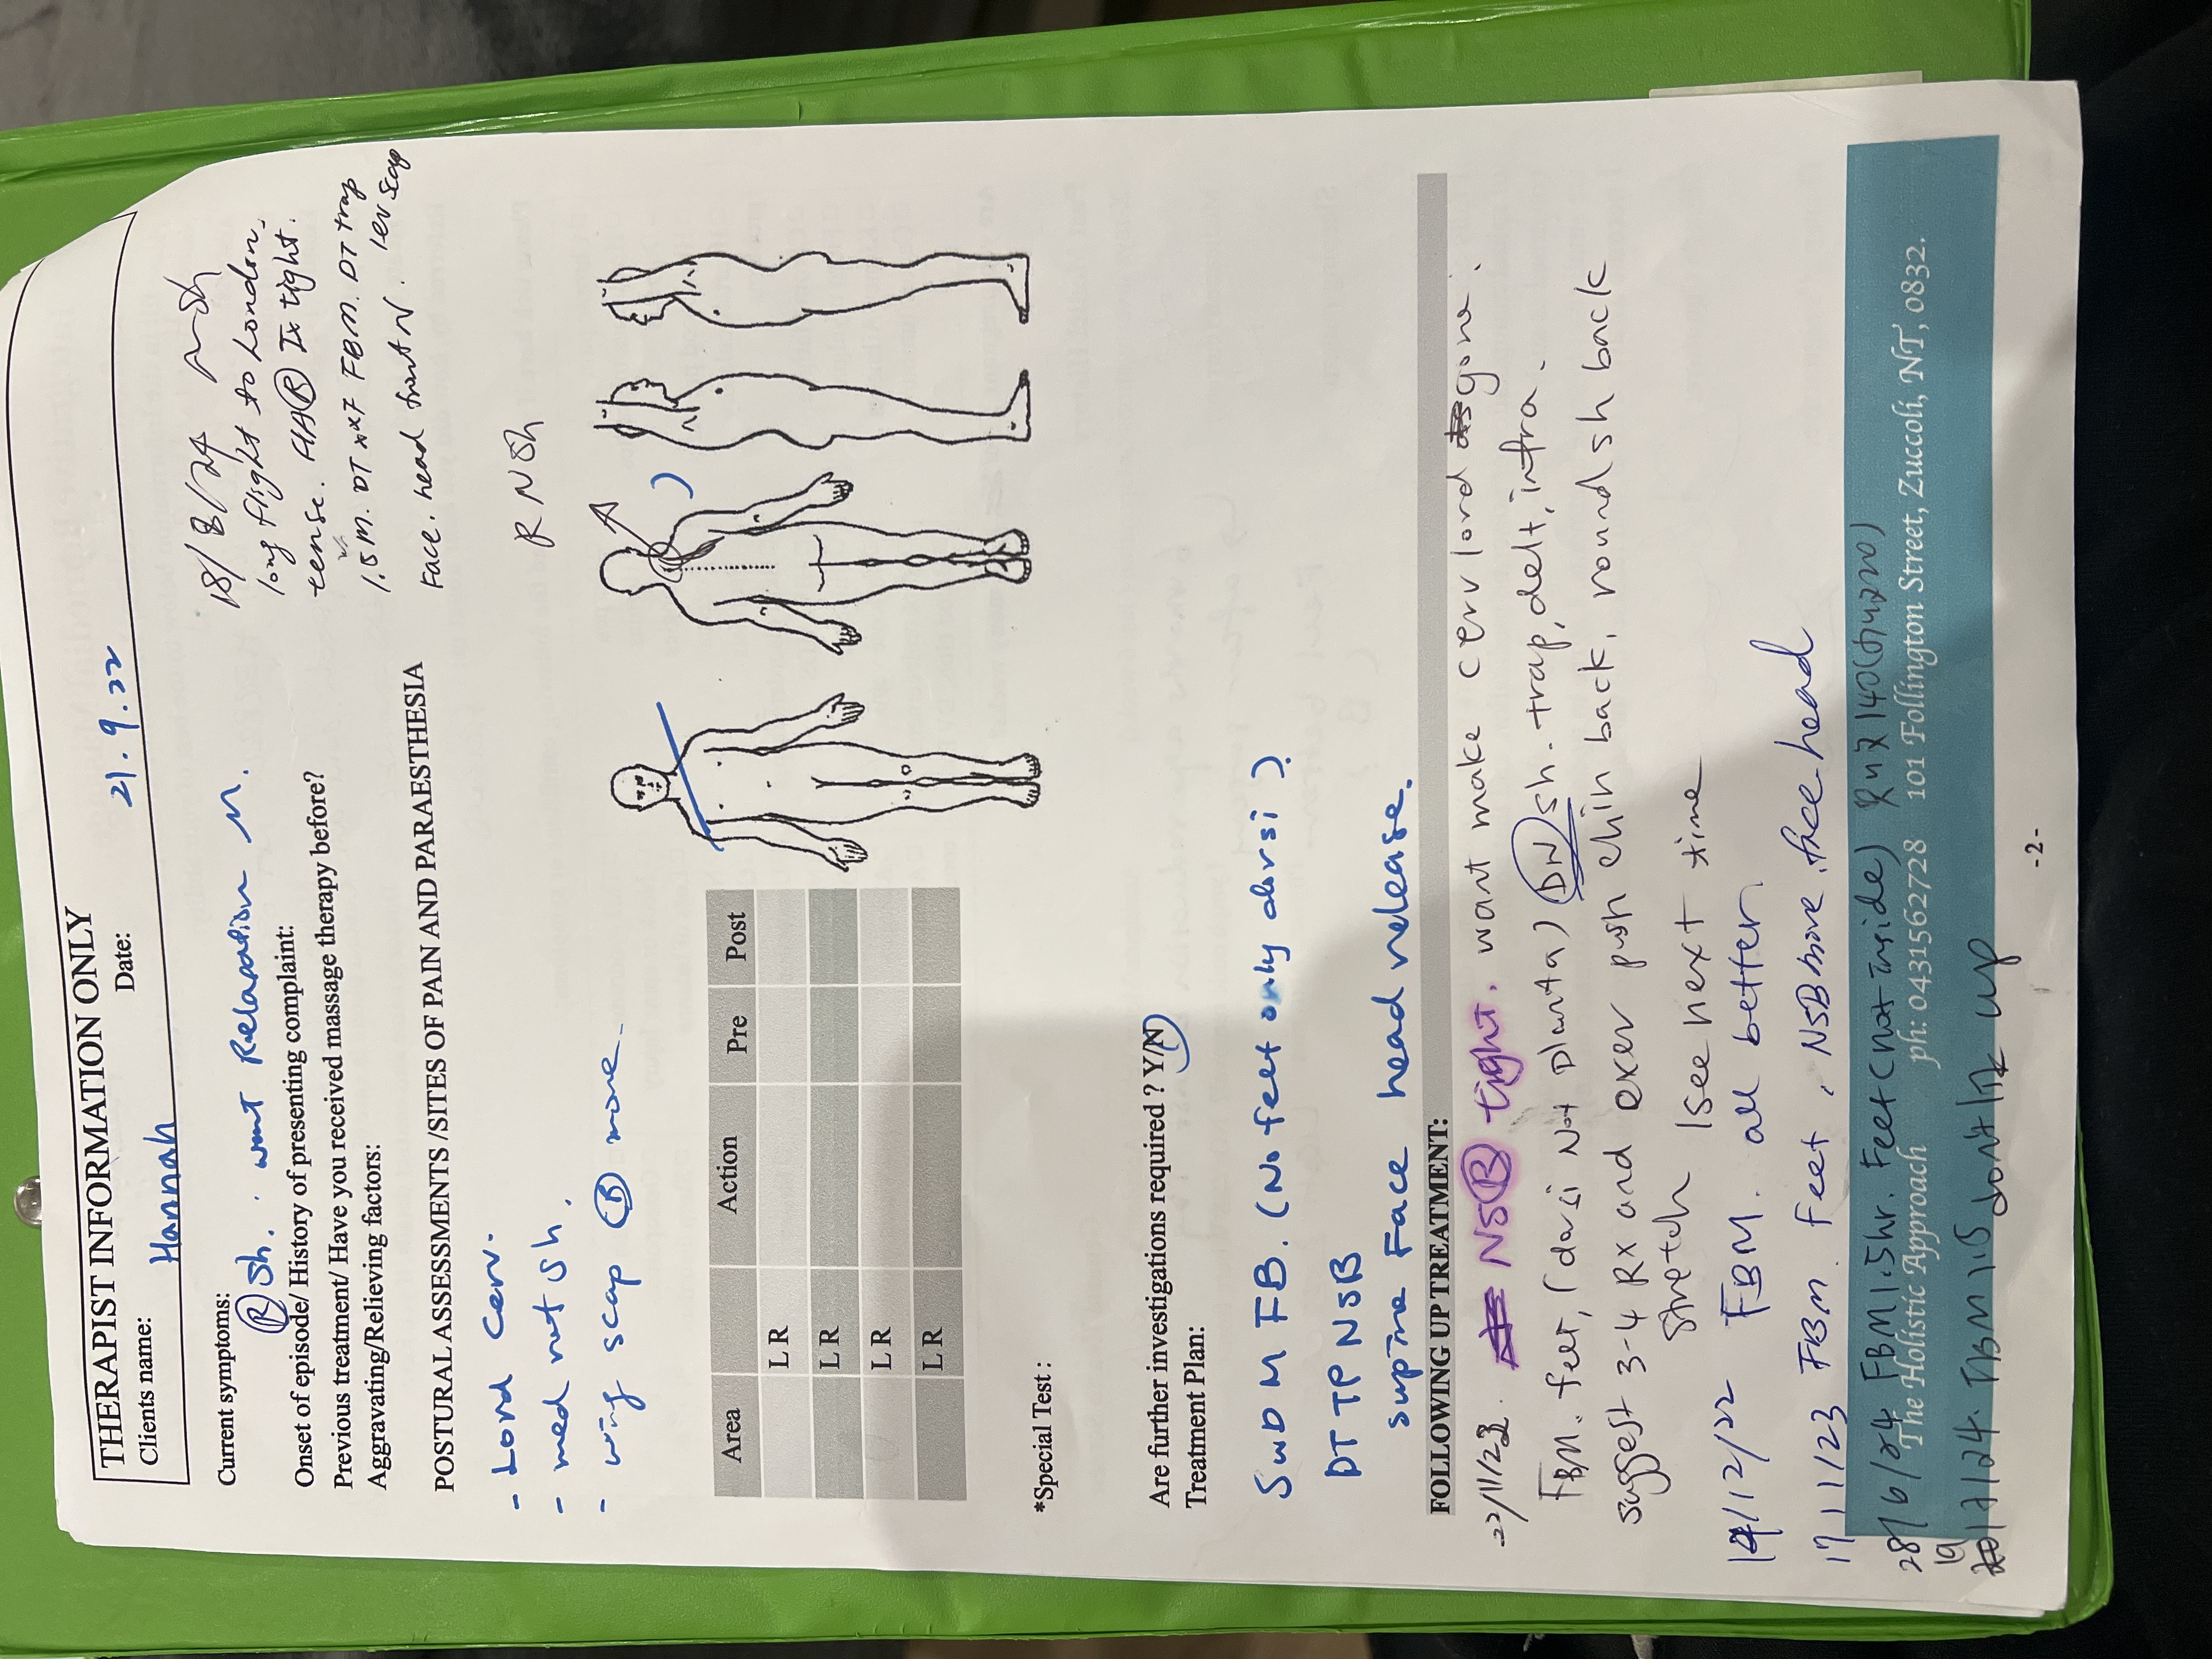 THERAPIST INFORMATION ONLY
Clients name: Hannah Date: 21.9.22
18/8/24
long flight to London.
tense. HA (R) Ix tight.
1.5 M. DT xxF FBM. DT trap
lev scap
Face, head front N.
Current symptoms:
(R) sh. want Relaxation M.
Onset of episode/ History of presenting complaint:
Previous treatment/ Have you received massage therapy before?
Aggravating/Relieving factors:
POSTURAL ASSESSMENTS /SITES OF PAIN AND PARAESTHESIA
- Lord Cerv.
- med rot sh.
- wing scap (R) more.
R NSh
Area Action Pre Post
L R
L R
L R
L R
*Special Test :
Are further investigations required ? Y/N
Treatment Plan:
SWD M FB. (No feet only dorsi)
DT TP NSB
supine Face head release.
FOLLOWING UP TREATMENT:
22/11/22. NS(R) tight. want make cerv lord gone.
FBM. feet, (dorsi Not planta) (DN) sh. trap, delt, infra.
suggest 3-4 Rx and exer push chin back, round sh back
stretch (see next time
14/12/22 FBM. all better
17/11/23 FBM. Feet, NSB more, face head
28/6/24 FBM 1.5hr. Feet (not inside)
The Holistic Approach ph: 0431562728 101 Follington Street, Zuccoli, NT, 0832.
19/7/24. FBM 1.5 don't up
-2-